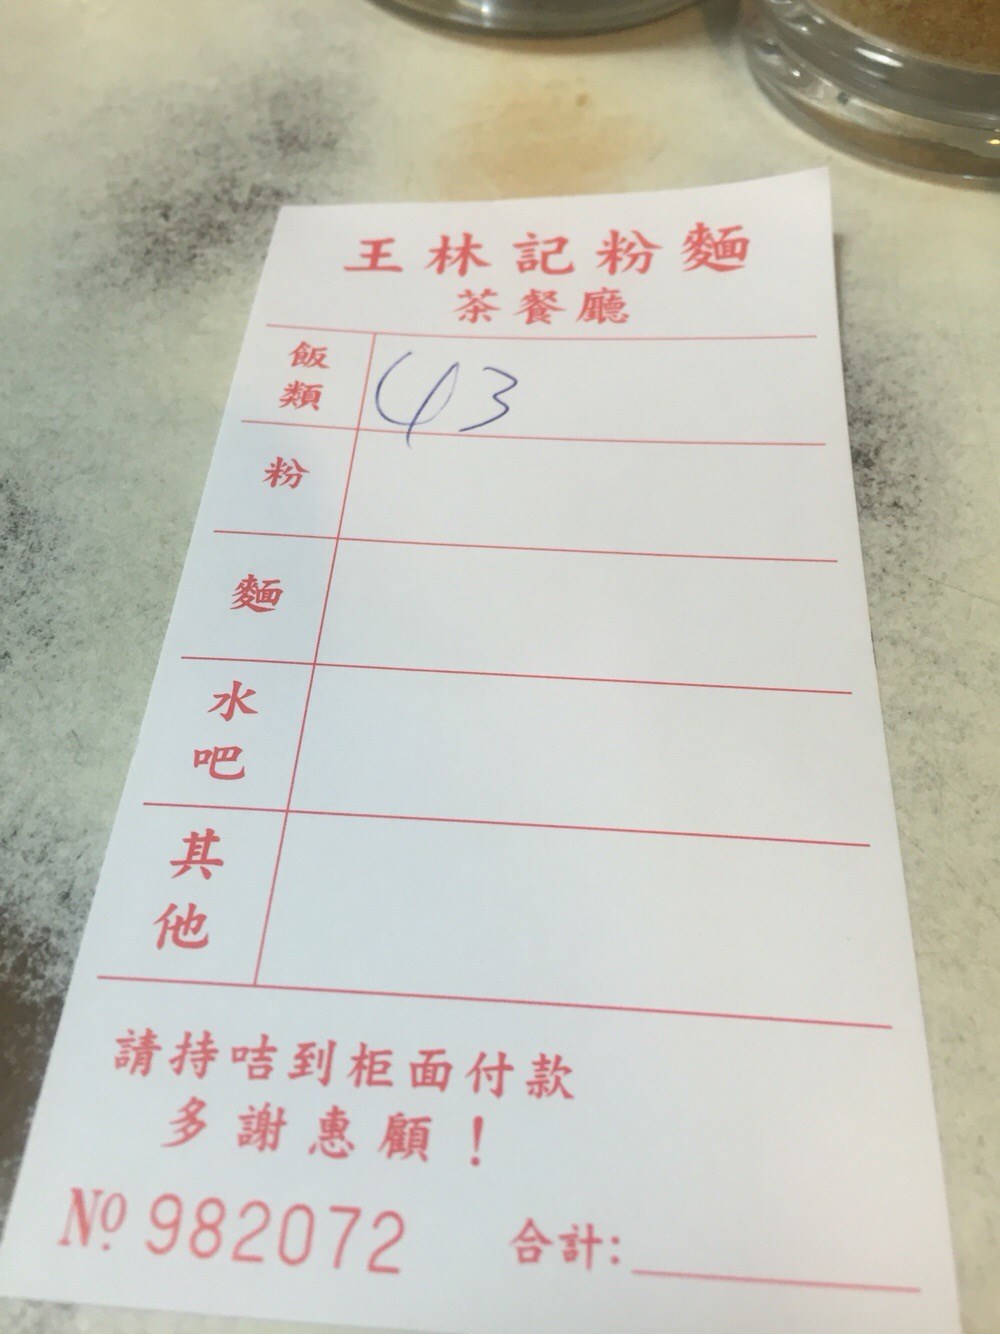 王林記粉麵
茶餐廳
飯類 43
粉
麵
水吧
其他
請持咭到柜面付款
多謝惠顧！
Nº 982072 合計: